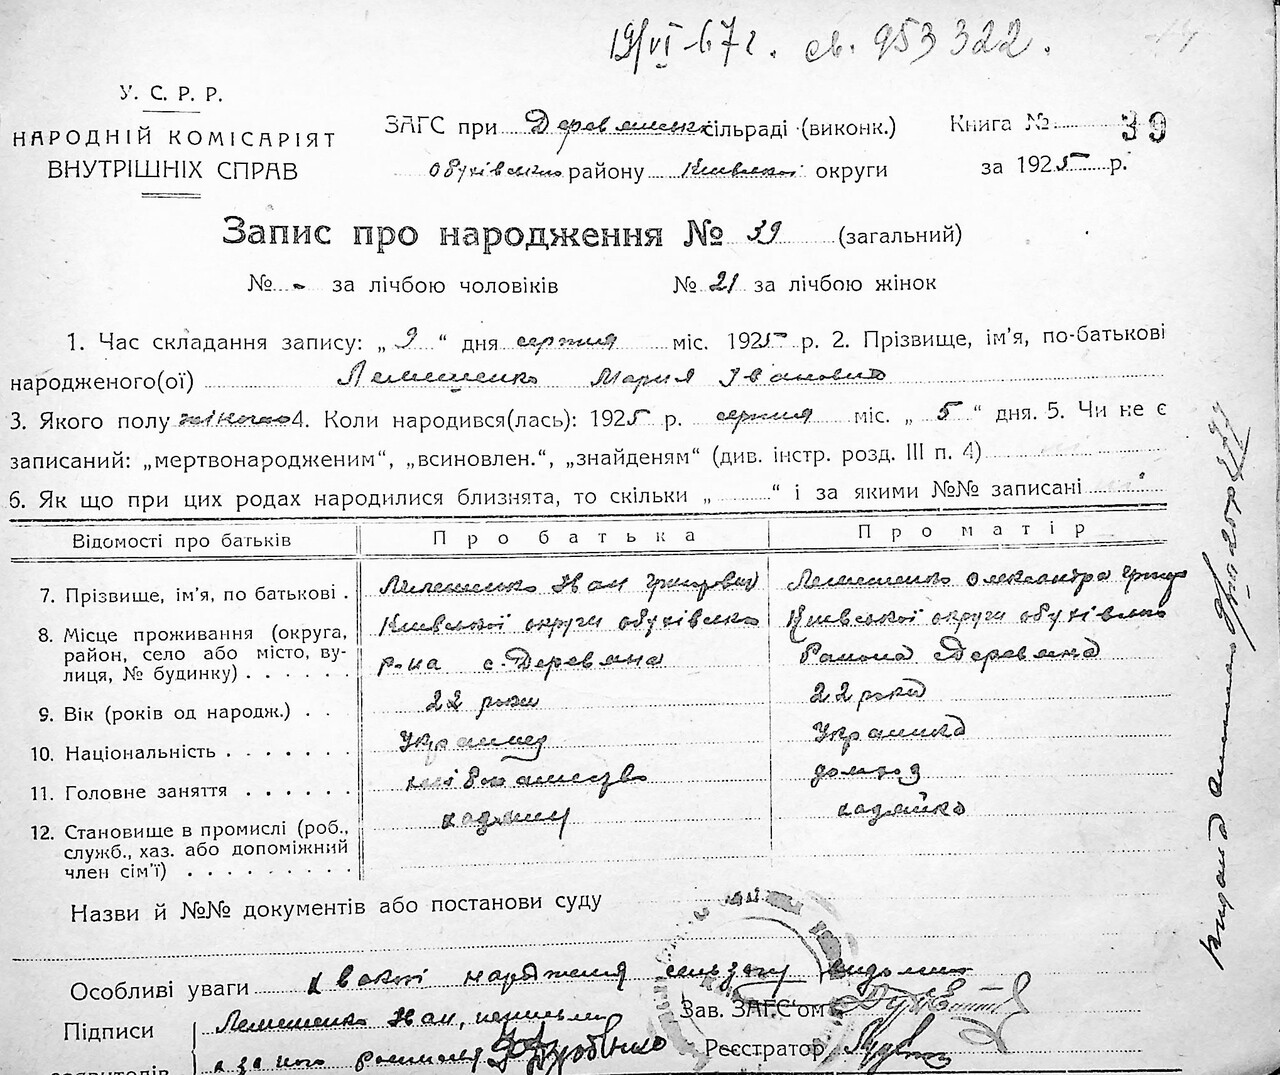 19/VI-67 г. св. 953322.
У. С. Р. Р.
НАРОДНІЙ КОМІСАРІЯТ
ВНУТРІШНІХ СПРАВ
ЗАГС при Деревянск сільраді (виконк.)
Обухівсько району Київської округи
Книга № 39
за 1925 р.
Запис про народження № 39 (загальний)
№ - за лічбою чоловіків № 21 за лічбою жінок
1. Час складання запису: „ 9 “ дня серпня міс. 1925 р. 2. Прізвище, ім'я, по-батькові
народженого(ої) Лемешенко Мария Івановна
3. Якого полу жіночо 4. Коли народився(лась): 1925 р. серпня міс. „ 5 “ дня. 5. Чи не є
записаний: „мертвонародженим“, „всиновлен.“, „знайденям“ (див. інстр. розд. III п. 4)
6. Як що при цих родах народилися близнята, то скільки „ “ і за якими №№ записані ні
Відомості про батьків Про батька Про матір
7. Прізвище, ім'я, по батькові . Лемешенко Иан Григорович Лемешенко Олександра Григор
8. Місце проживання (округа, район, село або місто, вулиця, № будинку) . . . . . .
Київської округи обухівсько Київської округи обухівсько
р-на с. Деревяна Района Деревяна
9. Вік (років од народж.) . . 22 роки 22 роки
10. Національність . . . . . . . Украинец Украинка
11. Головне заняття . . . . . . хлібопашество домхоз
12. Становище в промислі (роб., служб., хаз. або допоміжний член сім'ї) . . . . . . . . . хазяин хазяйка
Назви й №№ документів або постанови суду
Особливі уваги народження
Зав. ЗАГС'ом
Підписи
Лемешенко Иан,
а за його
Реєстратор
заявителів